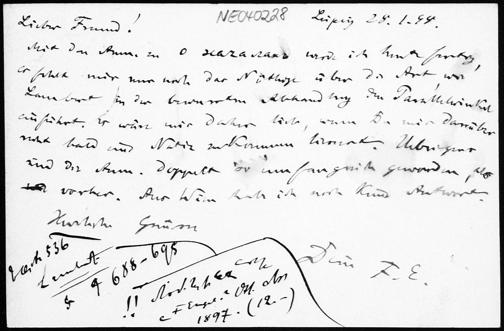 NE040228
Leipzig 28.1.99.
Lieber Freund!
Mit den Anm. zu O началахъ werde ich heute fertig,
es fehlt mir nur noch das Nöthige über die Art, wie
Lambert in der bewussten Abhandlung den Parallelwinkel
einführt. Es wäre mir daher lieb, wenn Du mir darüber
recht bald eine Notiz zukommen liessest. Übrigens
sind die Anm. doppelt so umfangreich geworden, als
vorher. Aus Wien habe ich noch keine Antwort.
Herzliche Grüsse
Dein F. E.
536
Lambert
§ 9 688-695
!!
F Engel
1897. (12.-)